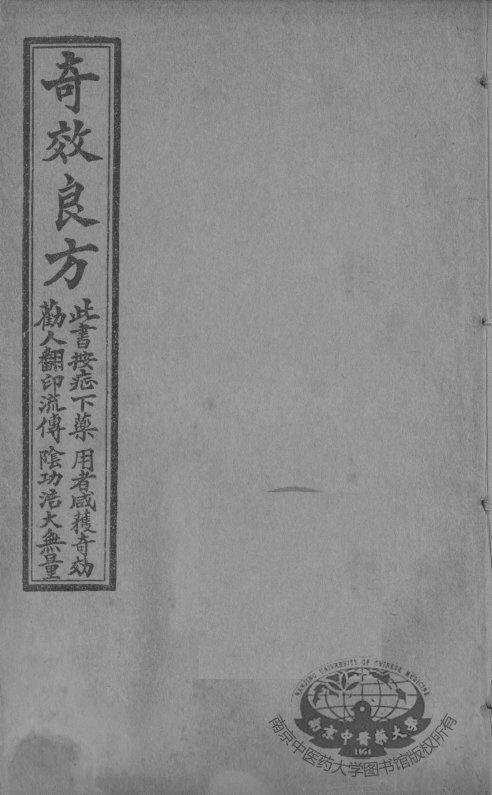 奇效良方
此書按症下藥 用者咸獲奇効
勸人翻印流傳 陰功浩大無量
NANJING UNIVERSITY OF CHINESE MEDICINE
南京中醫藥大學
1954
南京中医药大学图书馆版权所有